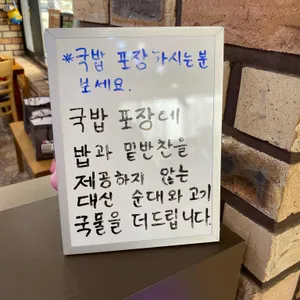 *국밥 포장가시는분
보세요.
국밥 포장에
밥과 밑반찬을
제공하지 않는
대신 순대와고기
국물을 더드립니다.